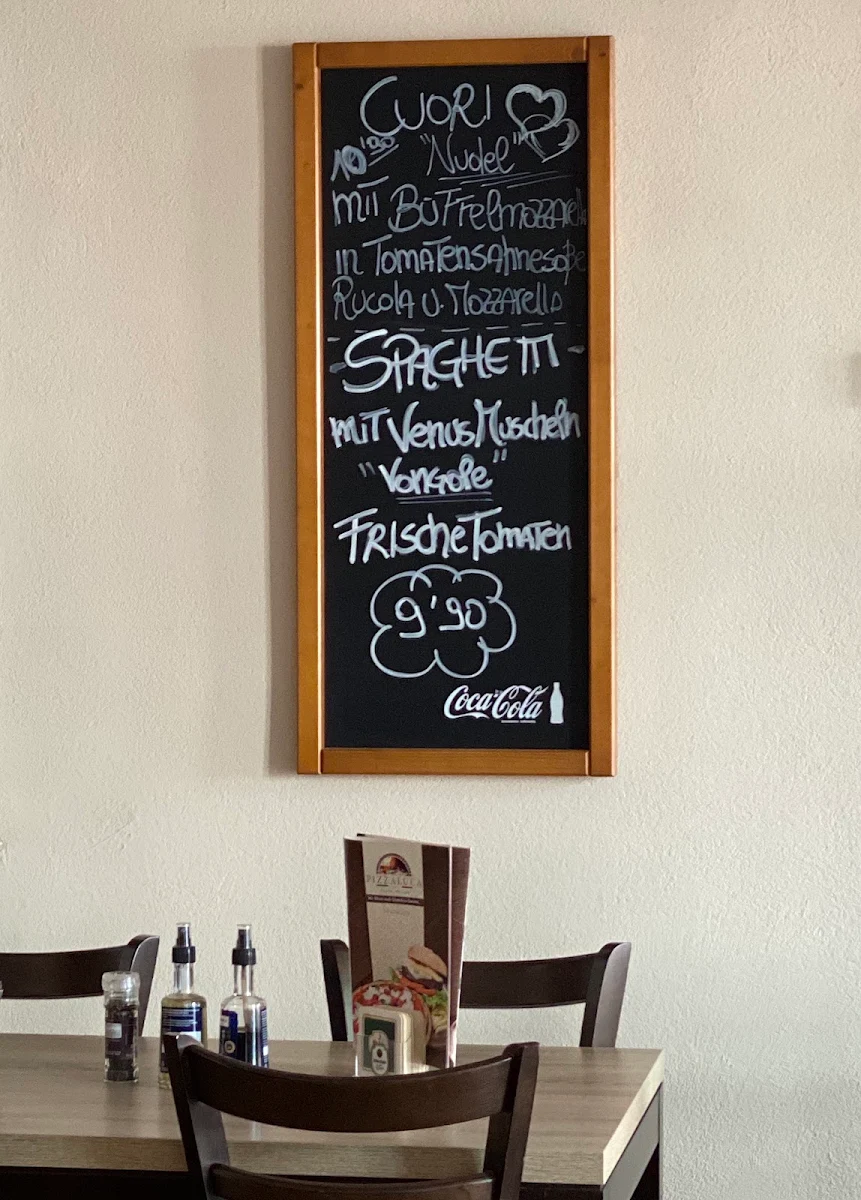 CUORI
10'90 "Nudel"
mit Büffelmozzarella
in Tomatensahnesoße
Rucola u. Mozzarella
- SPAGHETTI -
mit Venus Muscheln
"Vongole"
Frische Tomaten
9'90
Coca-Cola
PIZZALUCA